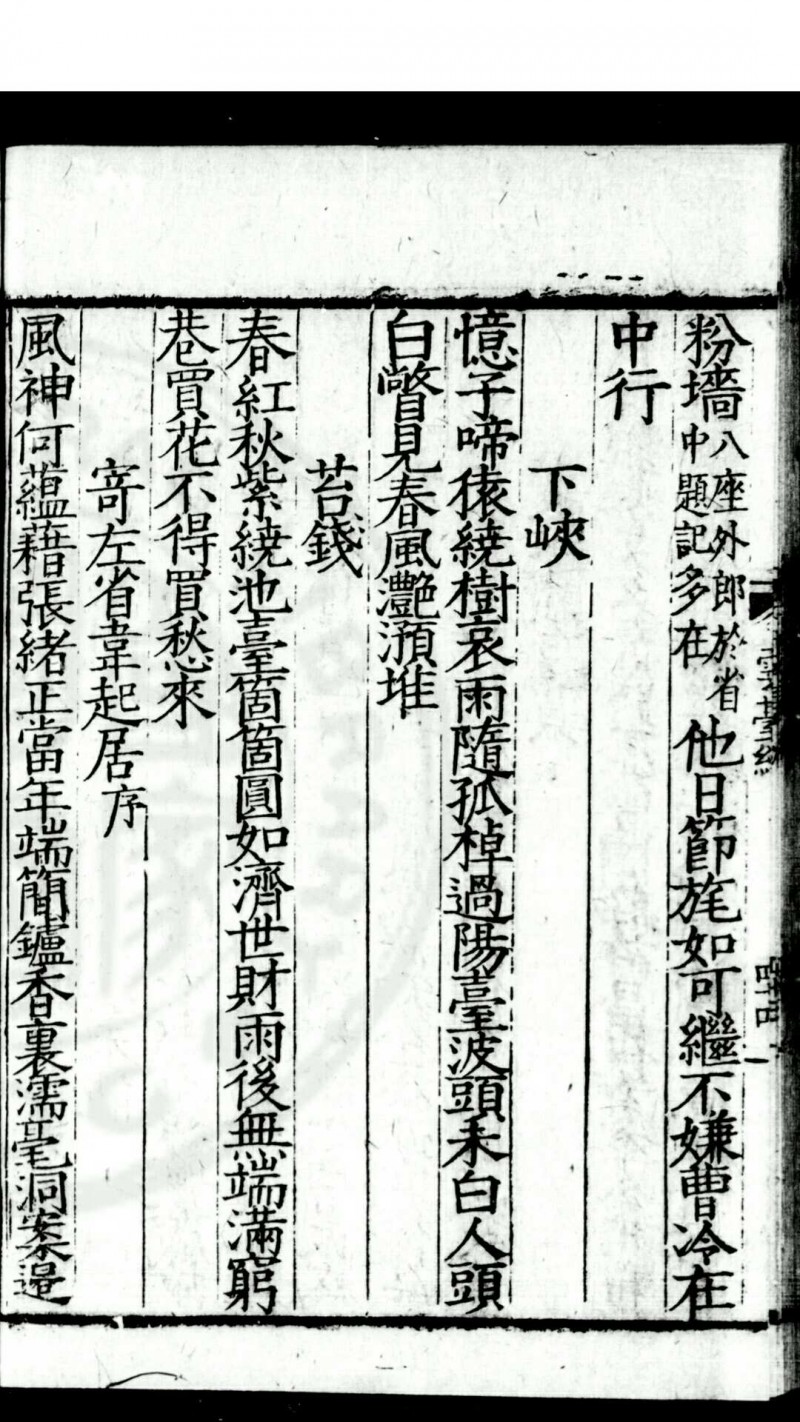 粉墻八座外郎於省中題記多在他日節旄如可繼不嫌曹冷在
中行
下峽
憶子啼猿繞樹哀雨隨孤棹過陽臺波頭未白人頭
白瞥見春風灔澦堆
苔錢
春紅秋紫繞池臺箇箇圓如濟世財雨後無端滿窮
巷買花不得買愁來
寄左省韋起居序
風神何蘊藉張緒正當年端簡鑪香裏濡毫洞案邉